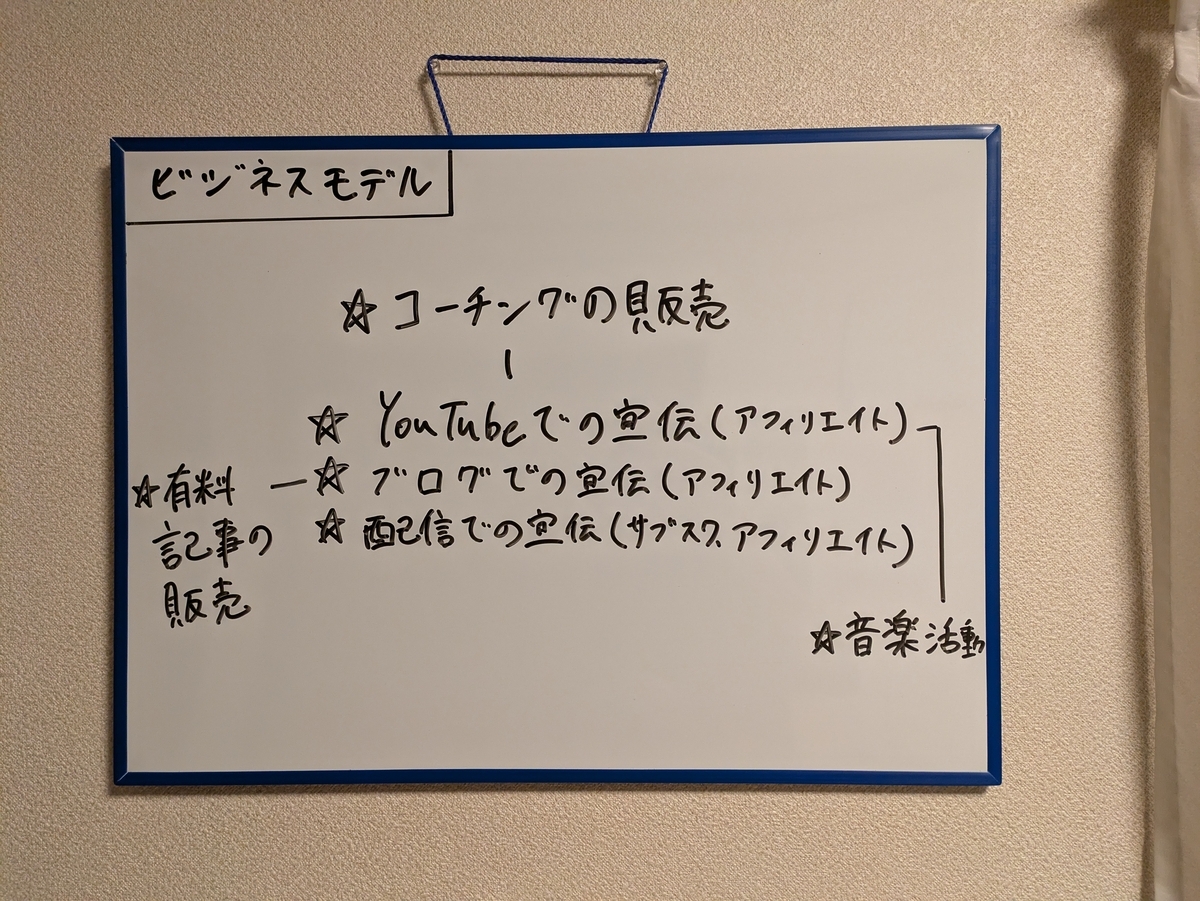 ビジネスモデル
☆ コーチングの販売
☆ YouTubeでの宣伝(アフィリエイト)
☆ ブログでの宣伝(アフィリエイト)
☆ 配信での宣伝(サブスク、アフィリエイト)
☆有料
記事の
販売
☆音楽活動